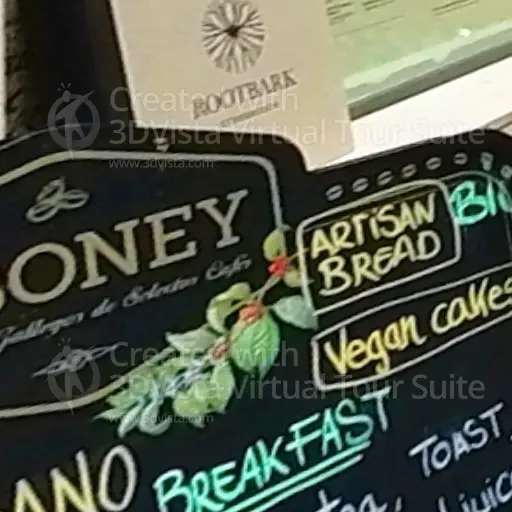 ROOTBARK
Created with
3DVista Virtual Tour Suite
www.3dvista.com
ONEY
de Selectos Cafés
ARTISAN
BREAD
BI
Vegan cakes
Created with
3DVista Virtual Tour Suite
www.3dvista.com
BREAKFAST
TOAST,
ANO
tea,
juice